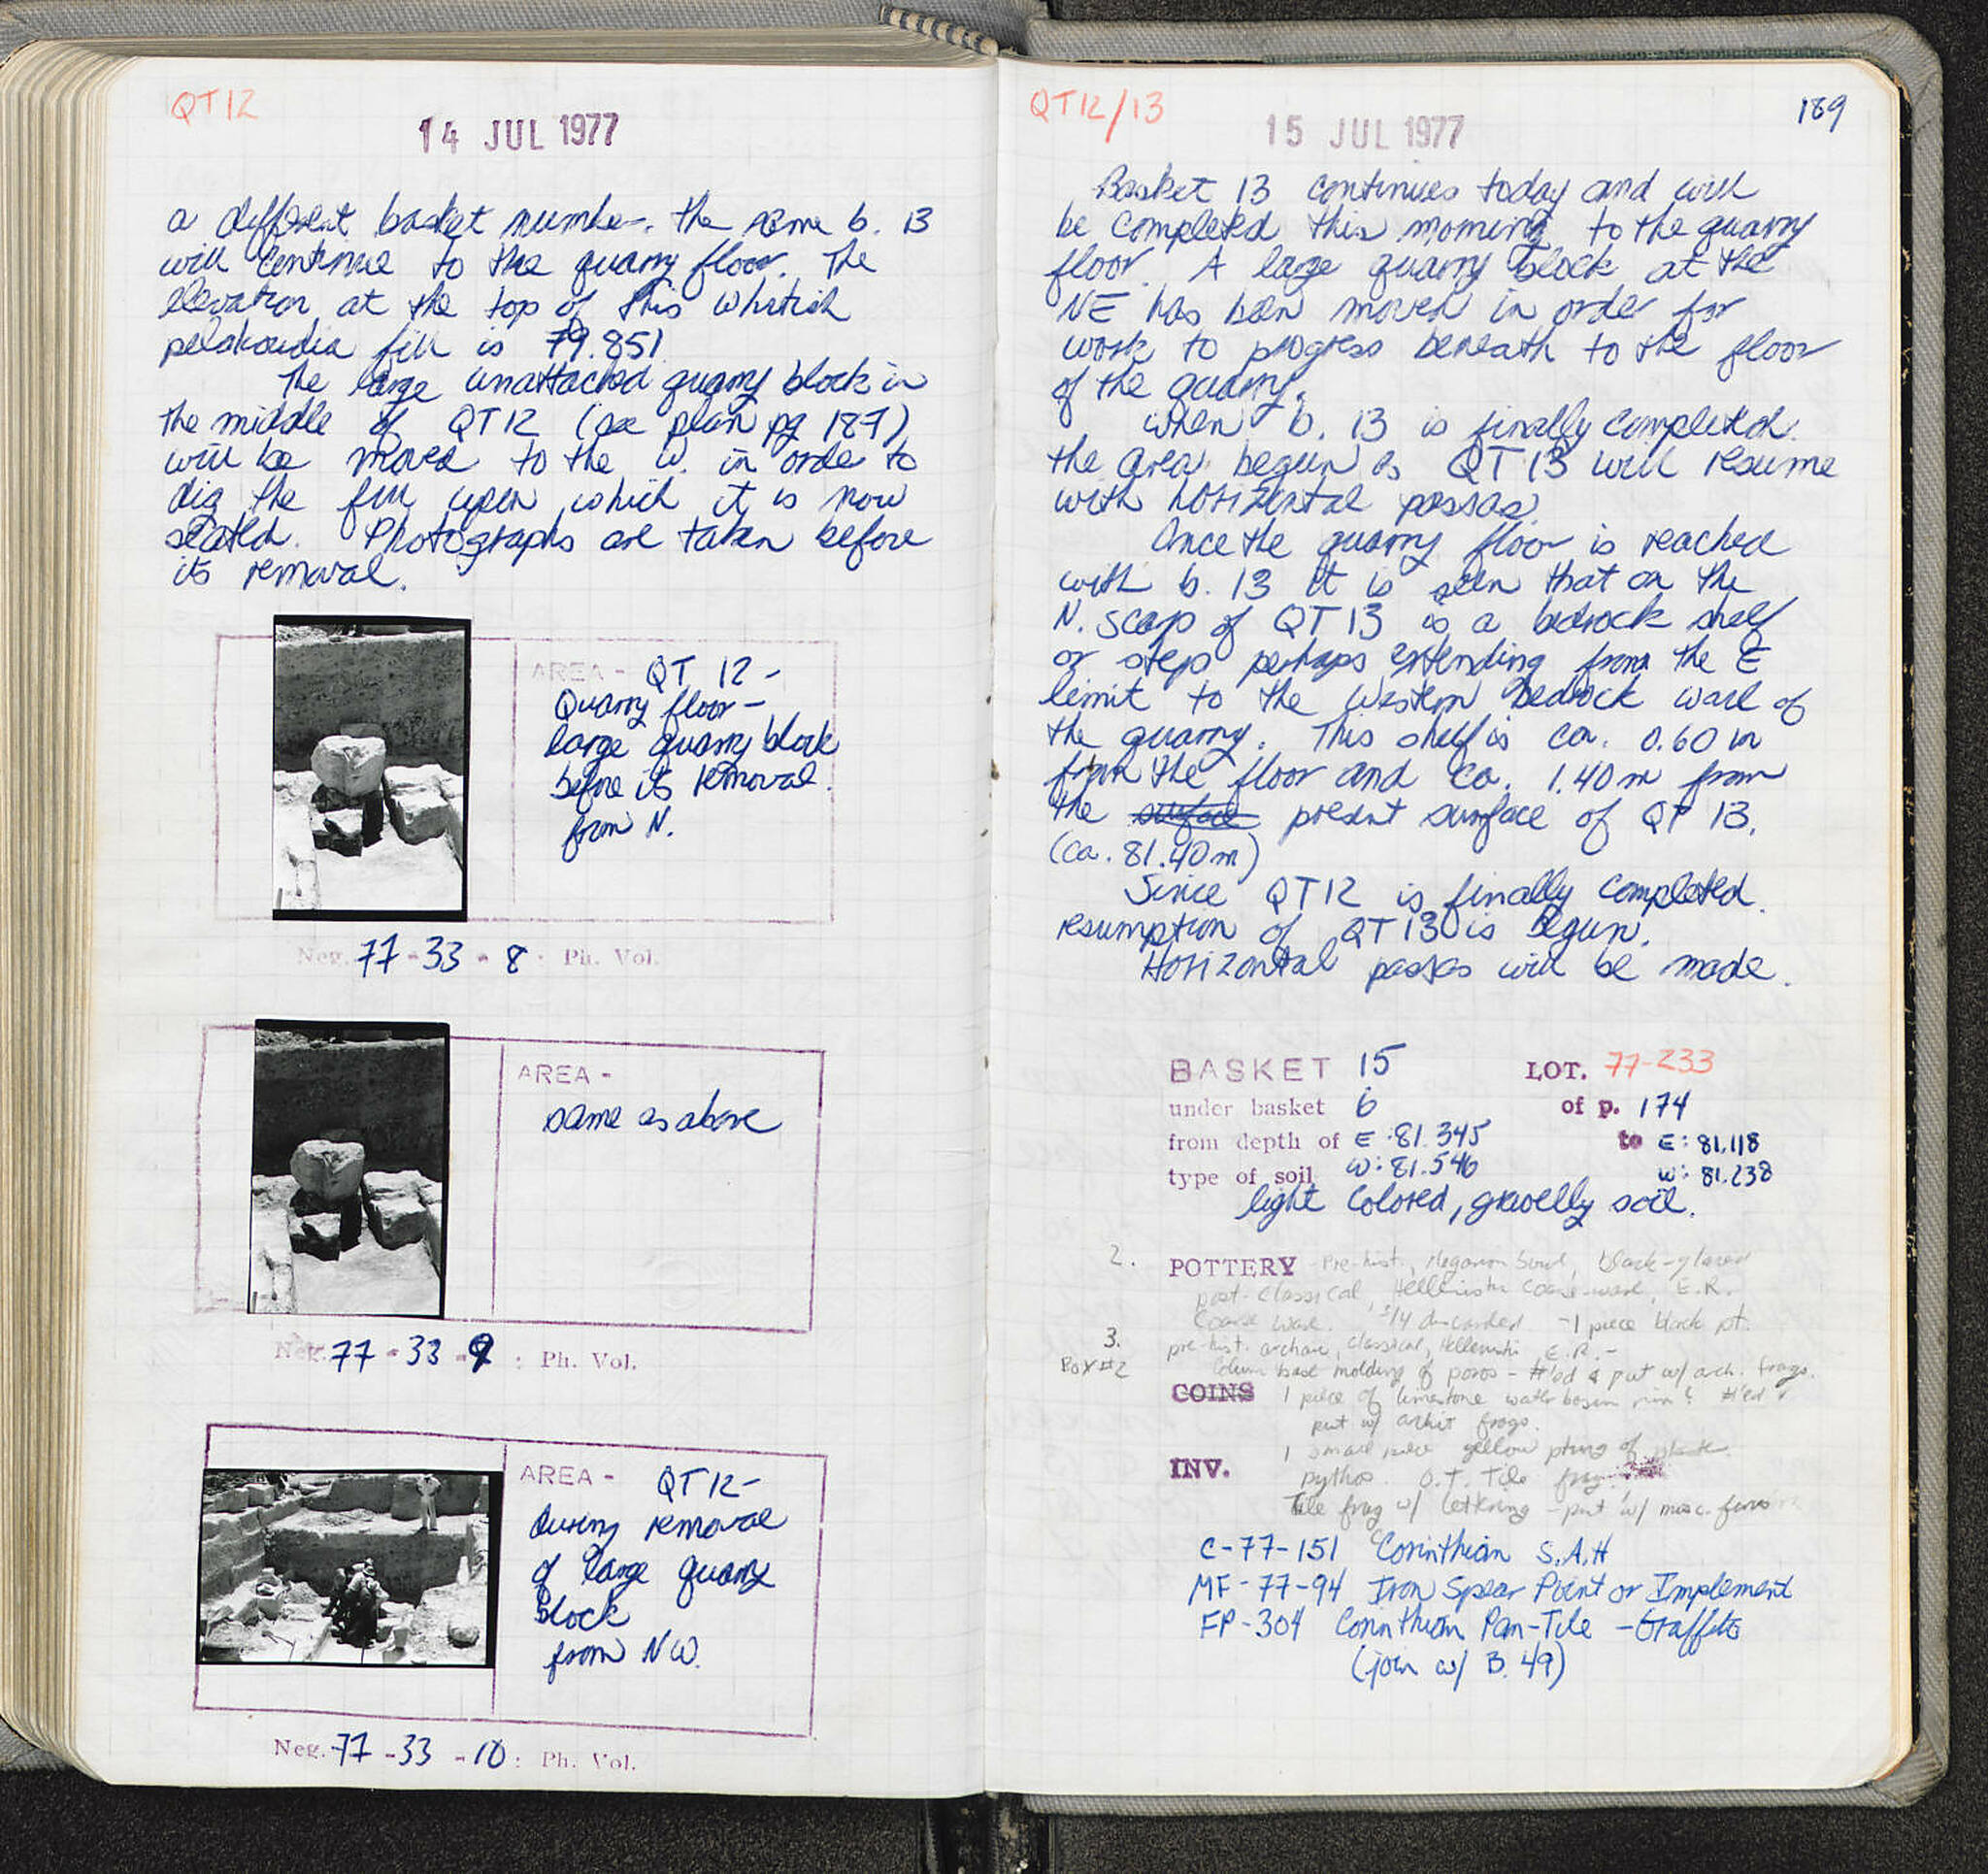 QT12
14 JUL 1977
a different basket number. the same b. 13
will continue to the quarry floor. The
elevation at the top of this whitish
pelakoudia fill is 79.851
The large unattached quarry block in
the middle of QT12 (see plan pg 187)
will be moved to the W. in order to
dig the fill upon which it is now
seated. Photographs are taken before
its removal.
AREA - QT 12 -
Quarry floor -
large quarry block
before its removal.
from N.
Neg. 77-33-8 : Ph. Vol.
AREA -
same as above
Neg. 77-33-9 : Ph. Vol.
AREA - QT12-
during removal
of large quarry
block
from NW.
Neg. 77-33-10 : Ph. Vol.
QT12/13
15 JUL 1977
189
Basket 13 continues today and will
be completed this morning to the quarry
floor. A large quarry block at the
NE has been moved in order for
work to progress beneath to the floor
of the quarry.
When b. 13 is finally completed.
the area begun as QT13 will resume
with horizontal passes.
Once the quarry floor is reached
with b. 13 it is seen that on the
N. scarp of QT13 is a bedrock shelf
or step perhaps extending from the E
limit to the Western bedrock wall of
the quarry. This shelf is ca. 0.60 m
from the floor and ca. 1.40 m from
the surface present surface of QT 13.
(ca. 81.40m)
Since QT12 is finally completed.
resumption of QT13 is begun.
Horizontal passes will be made.
BASKET 15 LOT. 77-233
under basket 6 of p. 174
from depth of E: 81.345 to E: 81.118
type of soil W: 81.546 W: 81.238
light colored, gravelly soil.
2. POTTERY Pre-hist., Megarian bowl, black-glazed
post-Classical, Hellenistic coarse-ware, E.R.
Coarse ware. 3/4 discarded - 1 piece black pt.
3. pre-hist. archaic, classical, Hellenistic E.R. -
Box #2 Column base molding of poros - #'ed & put w/ arch. frags.
COINS 1 piece of limestone water basin rim? #'ed &
put w/ archit frags.
1 small piece yellow of
INV. pythos. O.T. Tile frag.
Tile frag w/ lettering - put w/ misc. finds
C-77-151 Corinthian S.A.H
MF-77-94 Iron Spear Point or Implement
FP-304 Corinthian Pan-Tile - Graffito
(join w/ B. 49)